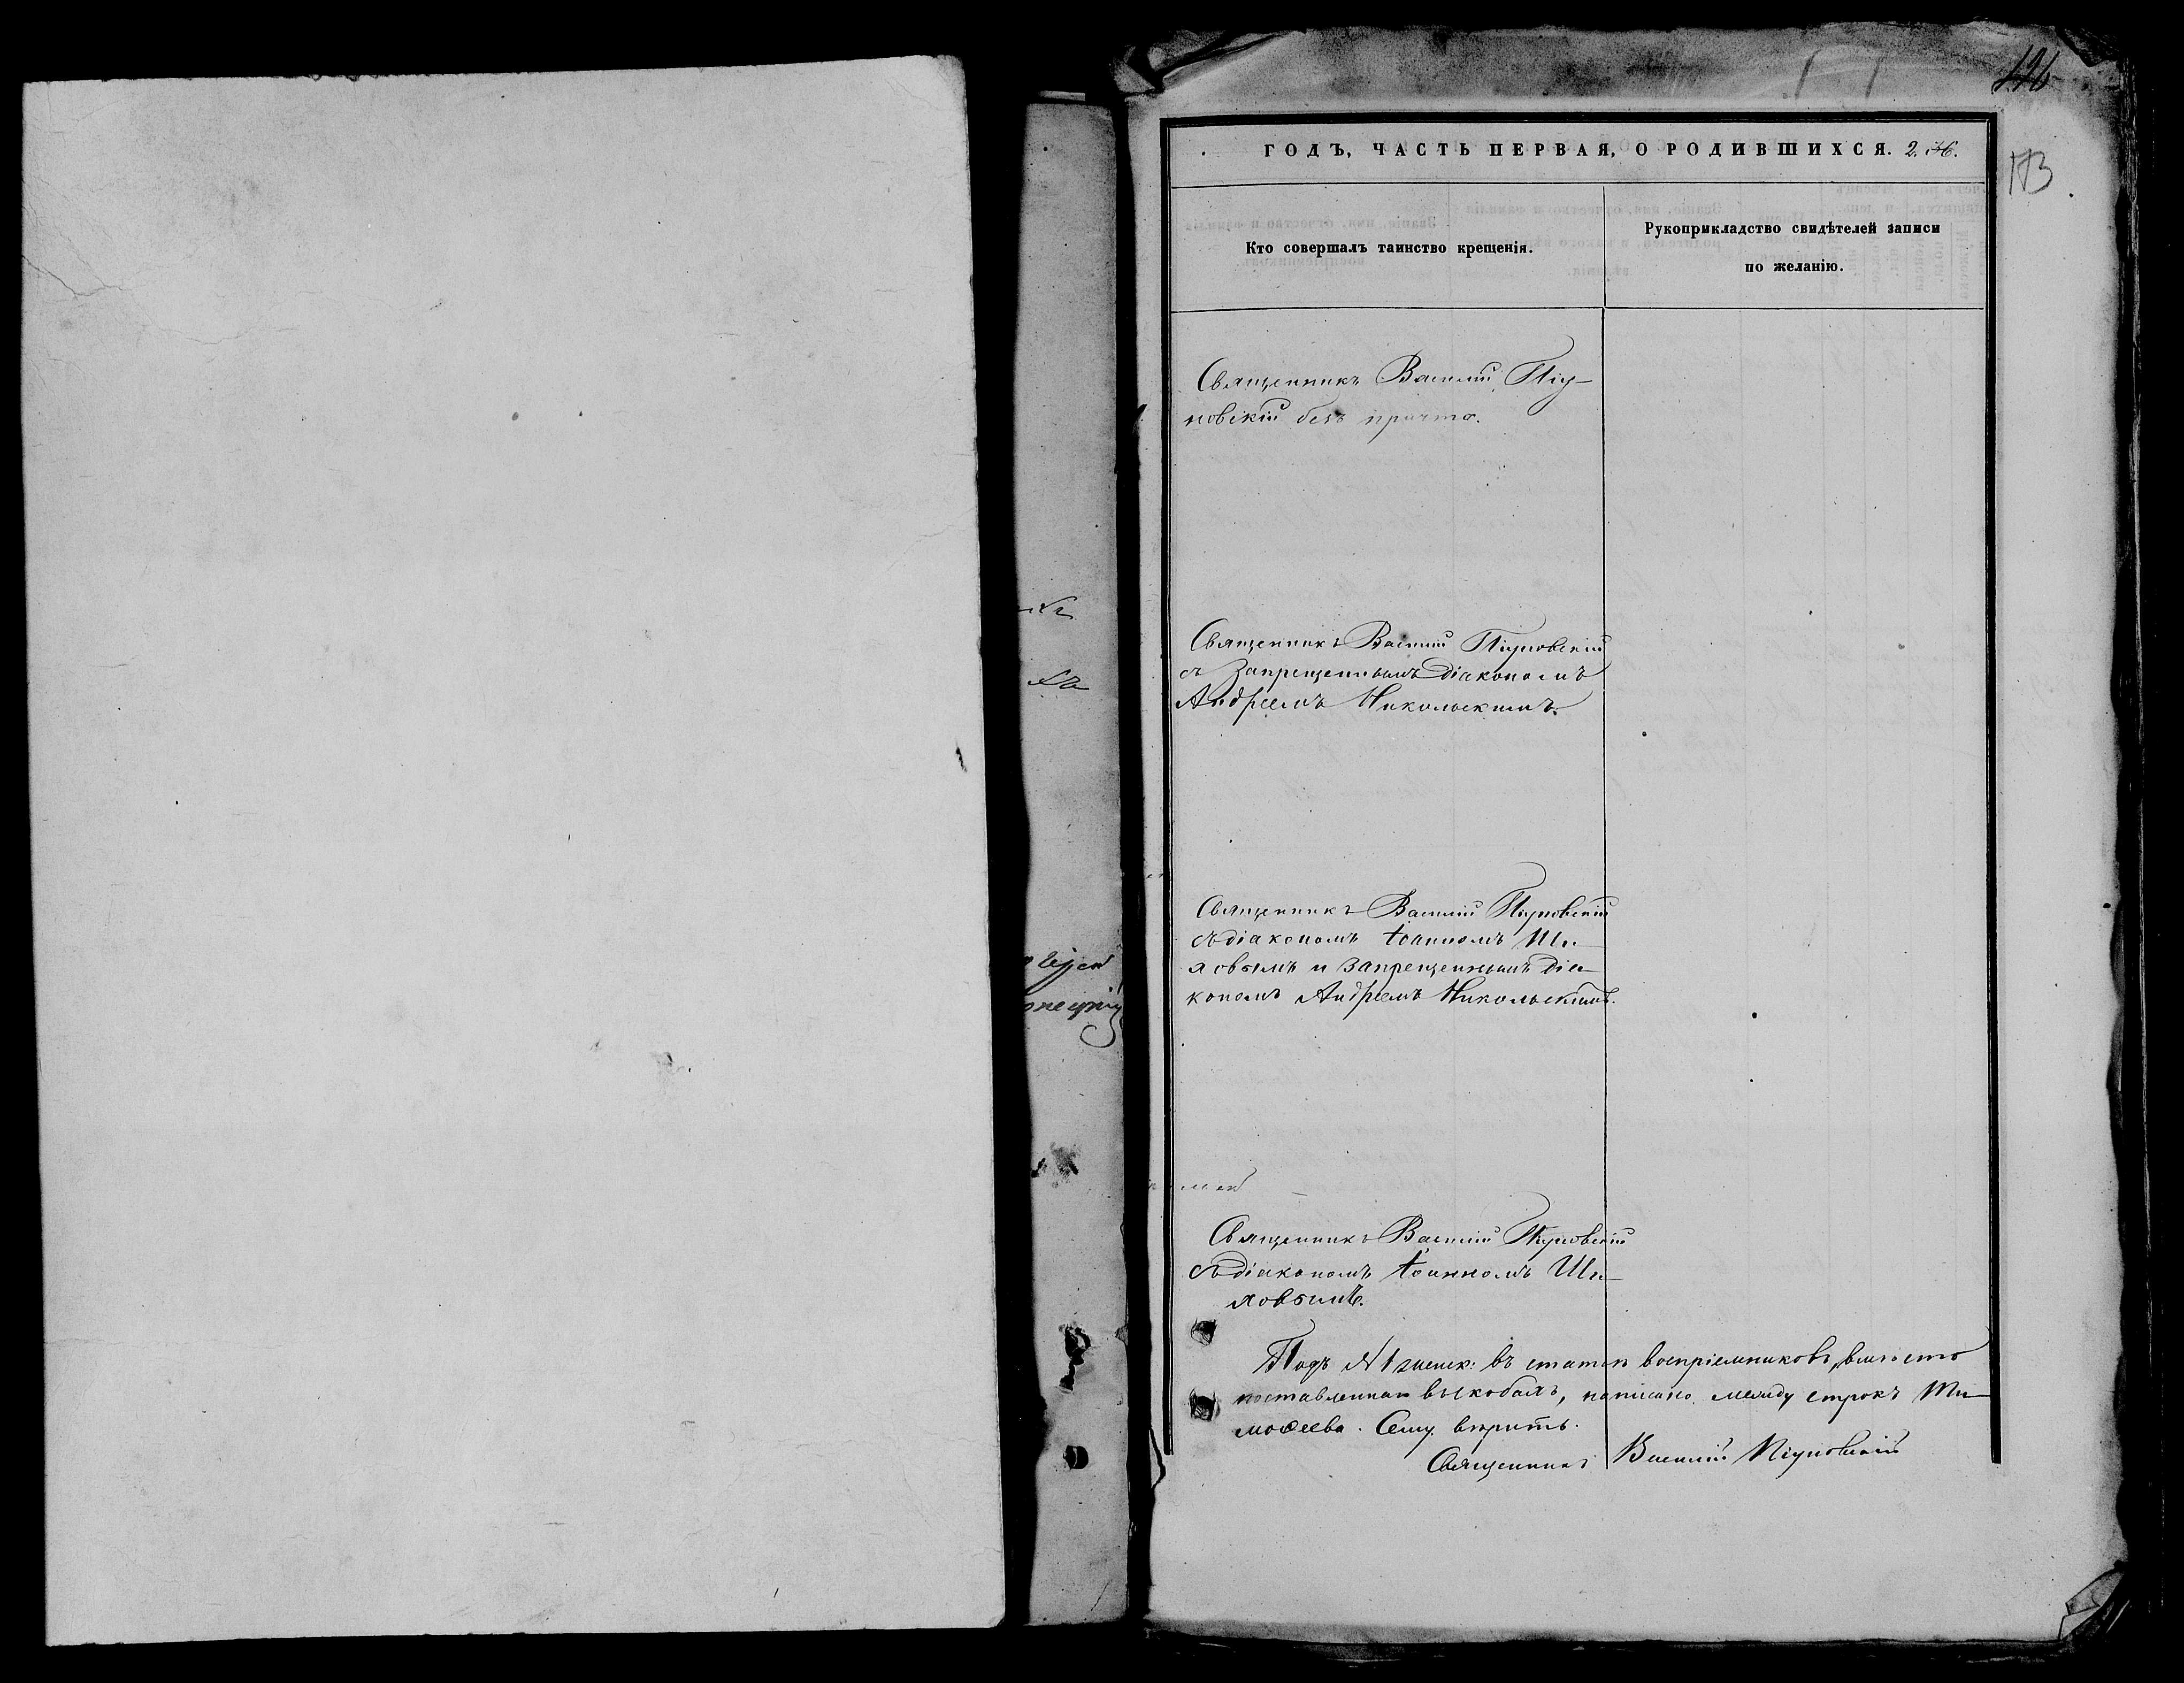 173
ГОДЪ, ЧАСТЬ ПЕРВАЯ, О РОДИВШИХСЯ. 2.
Кто совершалъ таинство крещенія.
Рукоприкладство свидѣтелей записи
по желанію.
Священникъ Василій Піу-
новскій безъ причта.
Священникъ Василій Піуновскій
съ запрещеннымъ діакономъ
Андреемъ Никольскимъ.
Священникъ Василій Піуновскій
съ діакономъ Іоанномъ Ши-
ловымъ и запрещеннымъ діа-
кономъ Андреемъ Никольскимъ.
Священникъ Василій Піуновскій
съ діакономъ Іоанномъ Ши-
ловымъ.
Подъ № 1 женск: въ статьѣ воспріемниковъ, вмѣсто
поставленнаго въ скобахъ, написано между строкъ Ти-
моѳеева. Сему вѣрить.
Священникъ Василій Піуновскій